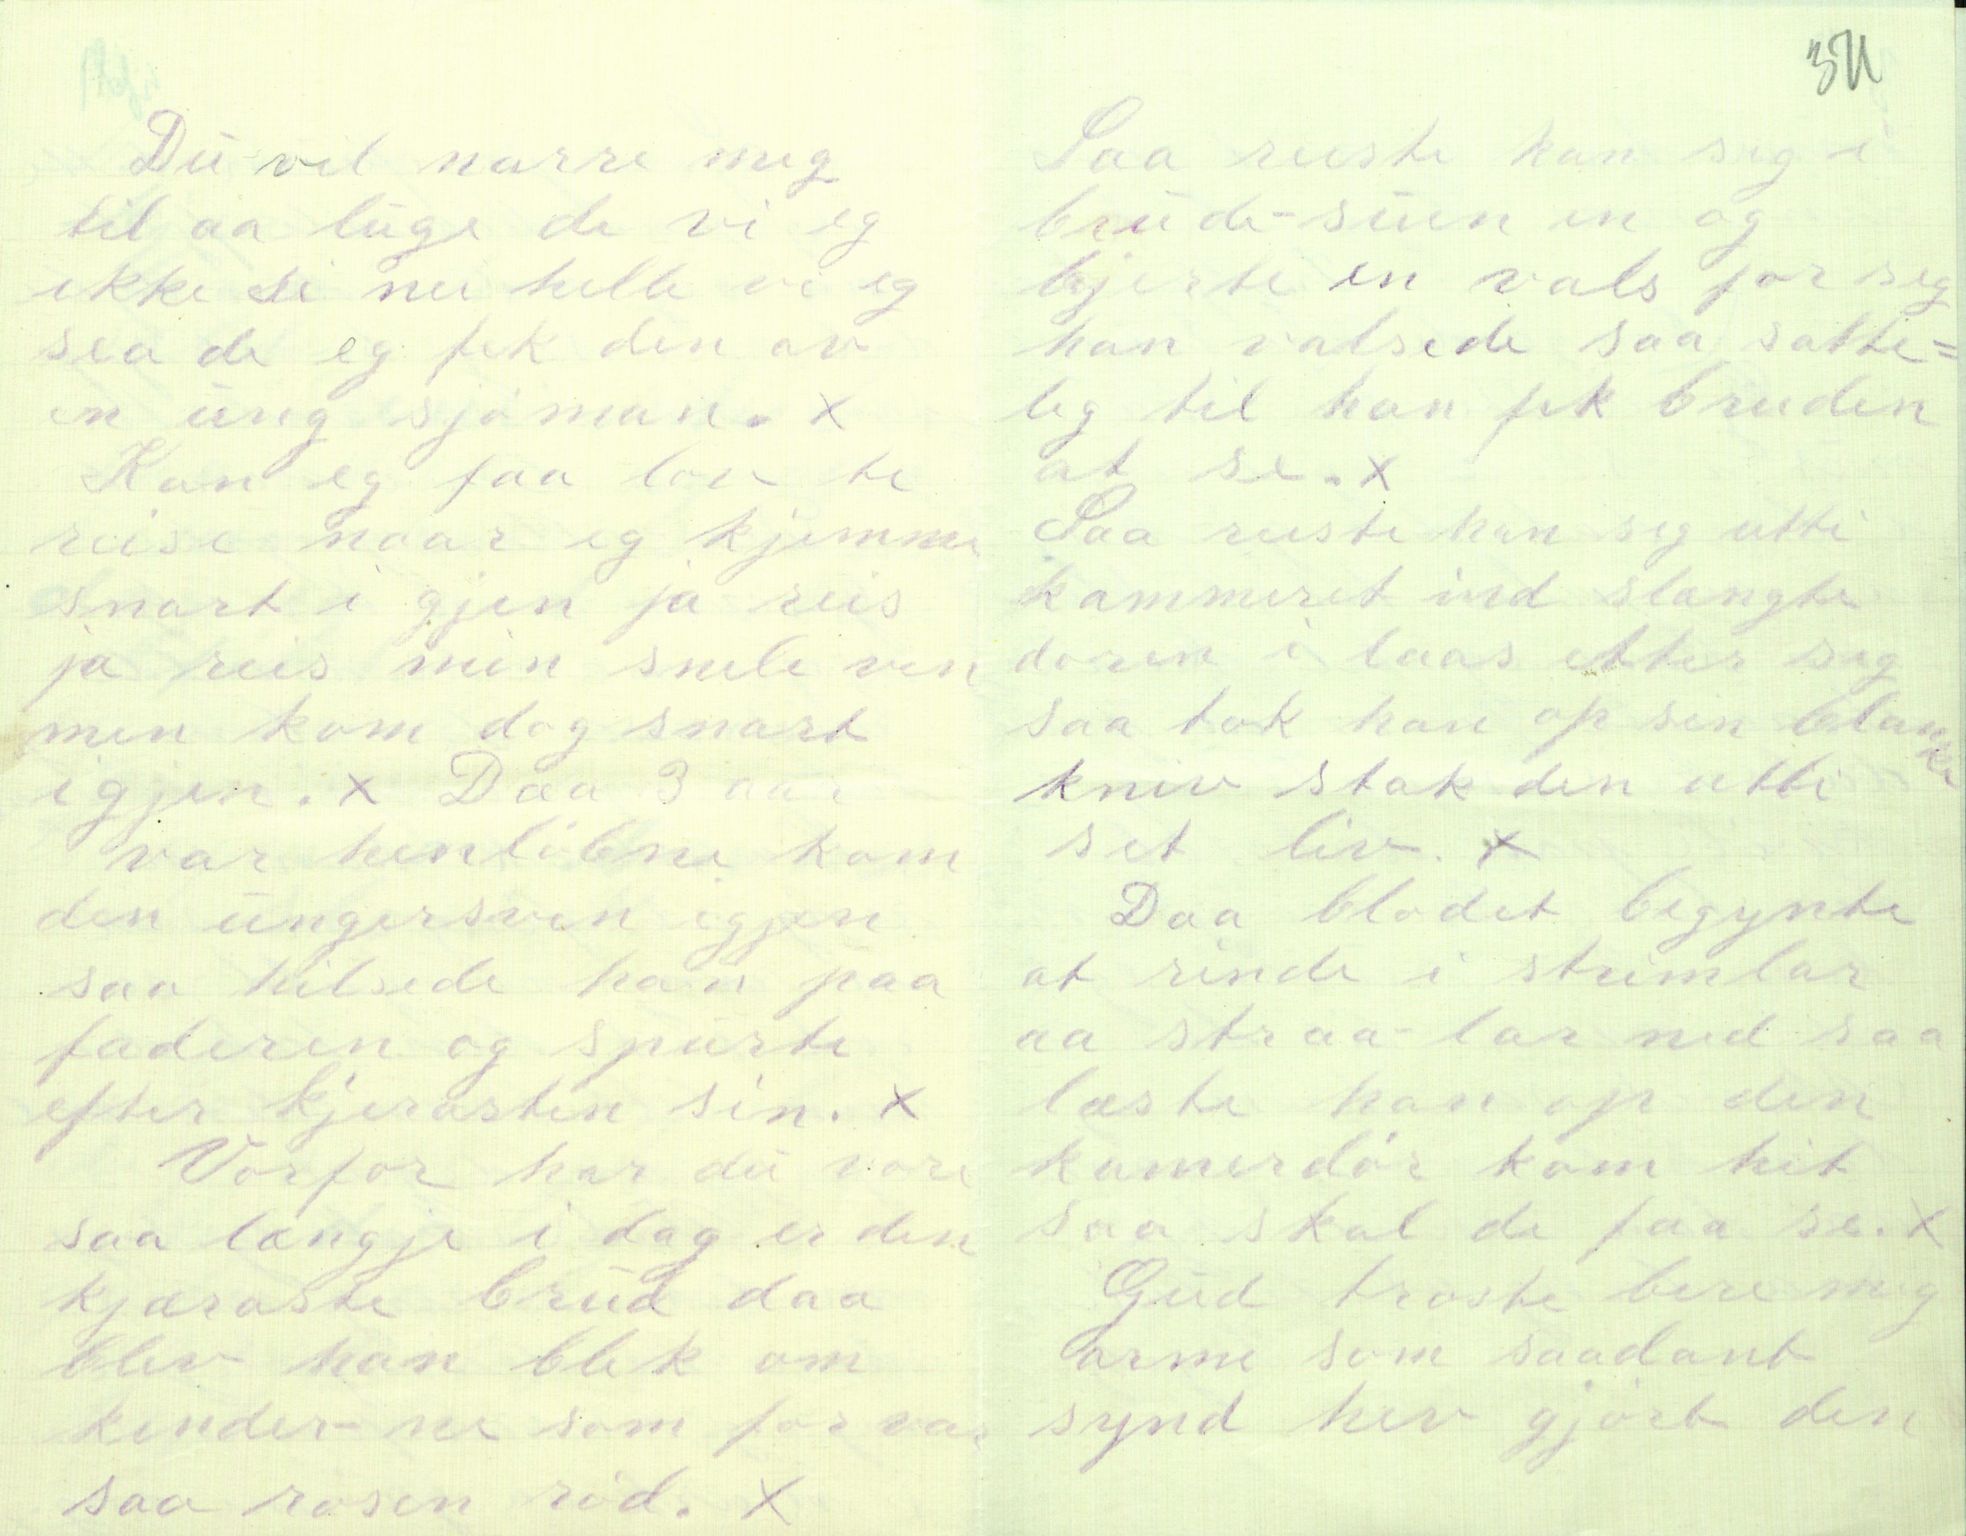 Du vil narre meg
til aa luge de vi eg
ikke si nei helle vi eg
sea de eg fek den av
en ung sjøman. x
Kan eg faa lov te
reise naar eg kjemme
snart i gjen ja reis
ja reis min snele ven
men kom dog snart
igjen. x Daa 3 aar
var henløbne kom
den ungersven igjen
saa hilsede han paa
faderen og spurte
efter kjerasten sin. x
Vorfor har du vore
saa længje i dag er den
kjæraste brud daa
blev han blek om
kinder-ne som for var
saa rosen rød. x
Saa reiste han seg i
brude-stuen en og
bjerte en vals for seg
han valsede saa satte=
leg til han fek bruden
at se. x
Saa reiste han seg utti
kammeret ind slangte
doren i laas etter seg
saa tok han op sen blanke
kniv stak den utti
set liv. x
Daa blodet begynte
at rinde i strimlar
aa straa-lar ned saa
læste han op den
kamerdør kom hit
saa skal de faa se. x
Gud trøste bere meg
arme som saadant
synd hev gjort den